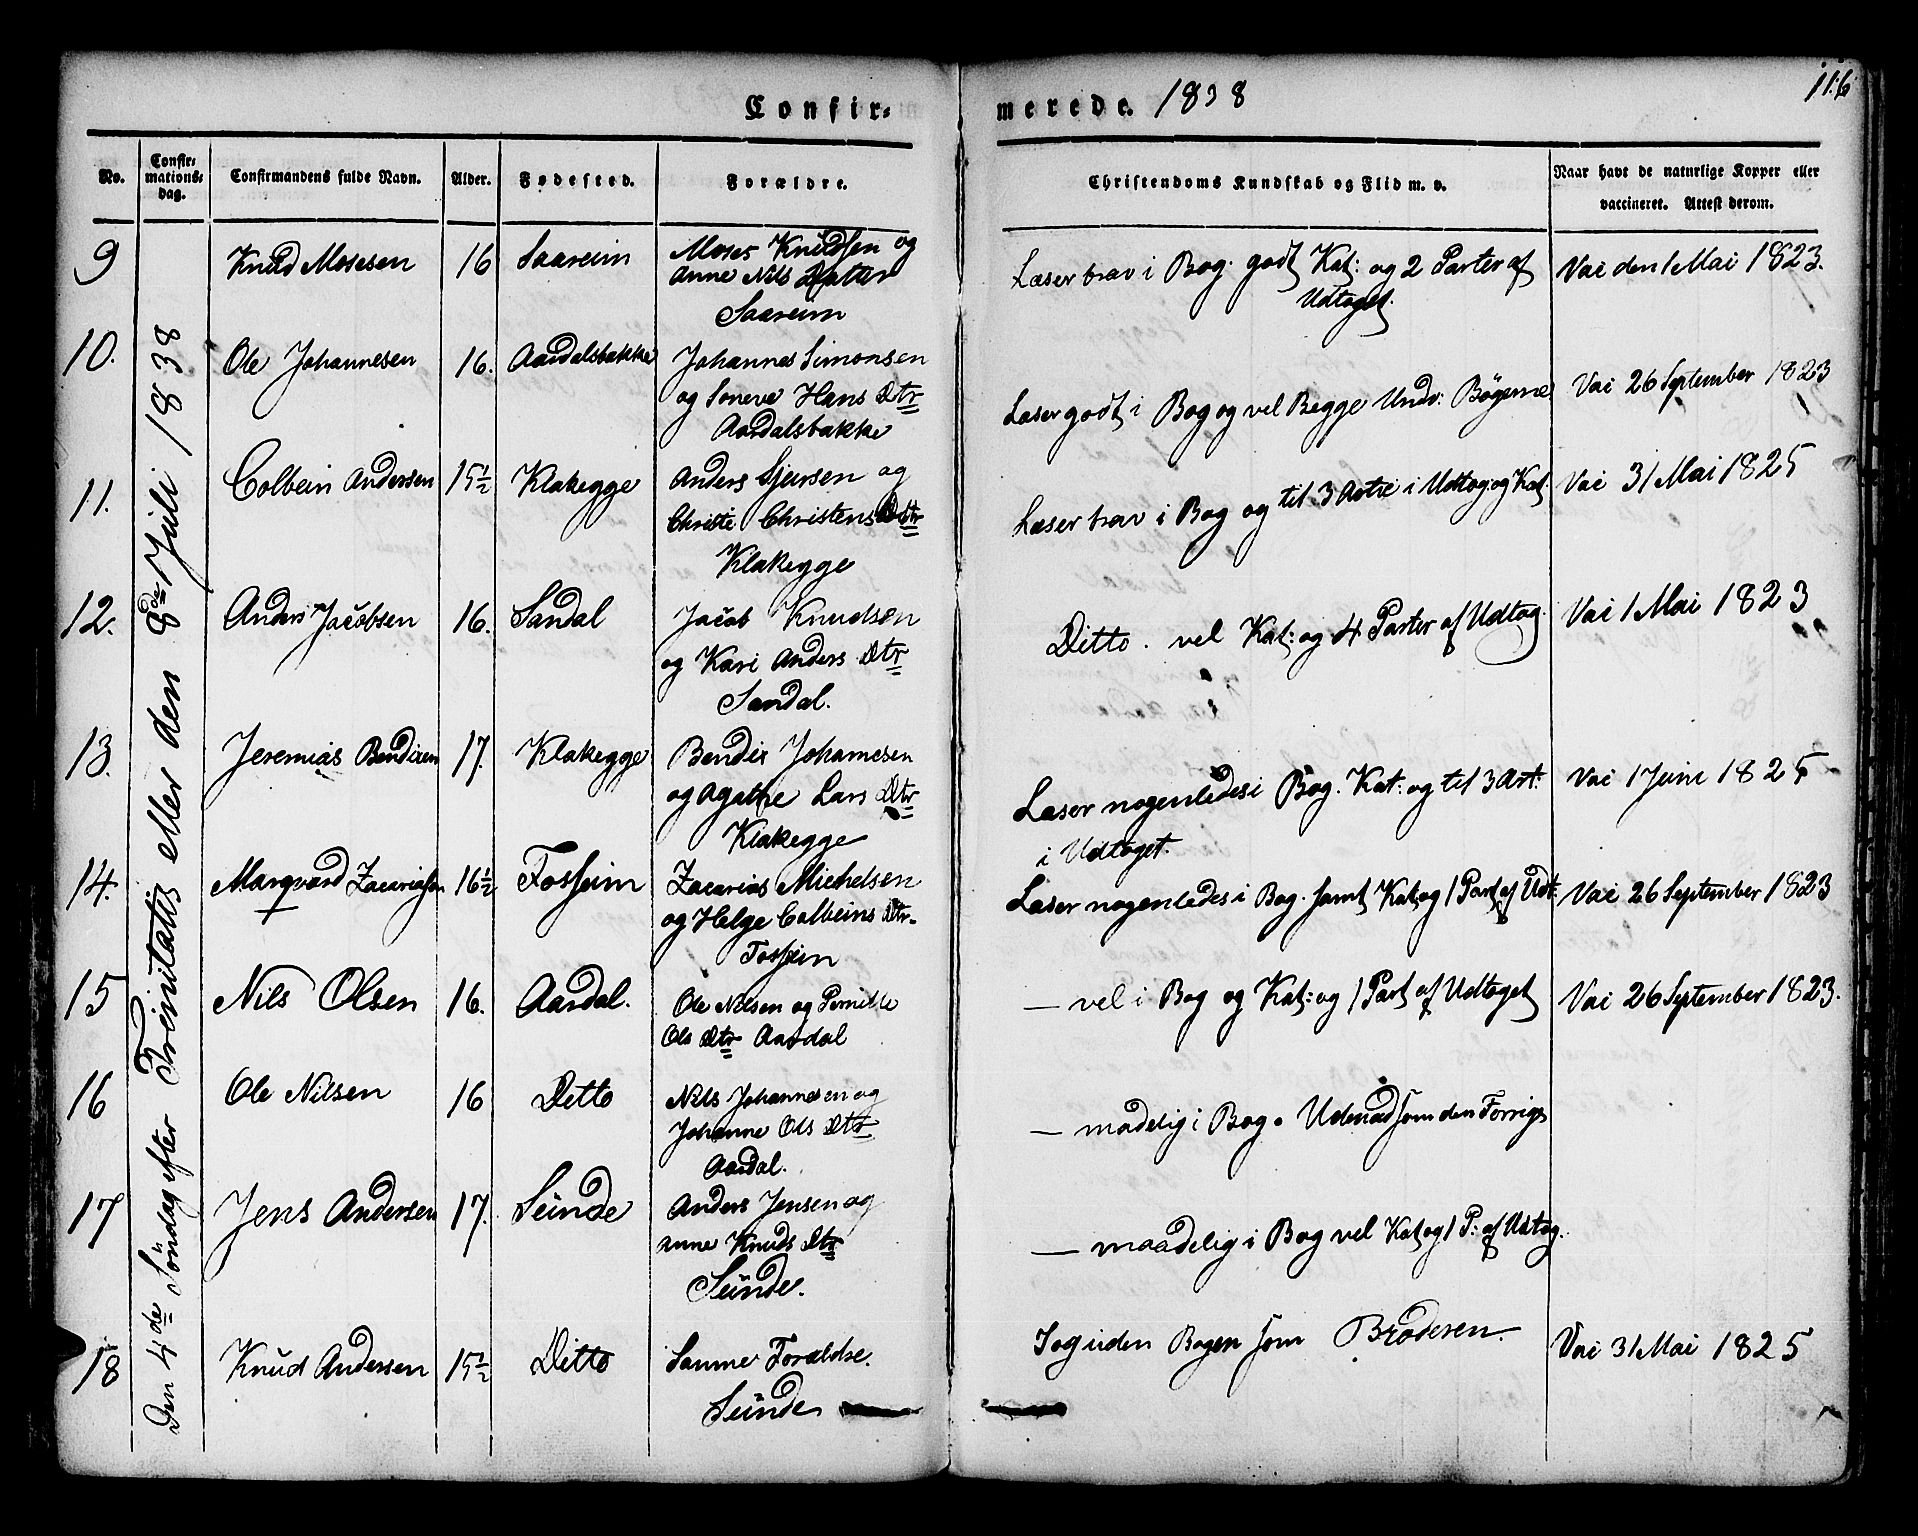 116
Confir= merede. 1838
No.
Confir=
mations=
dag.
Confirmandens fulde Navn.
Alder.
Fødested.
Forældre.
Christendoms Kundskab og Flid m. v.
Naar havt de naturlige Kopper eller
vaccineret. Attest derom.
Den 4de Søndag efter Trinitatis eller den 8de Juli 1838
9 Knud Mosesen 16 Saareim Moses Knudsen og
Anne Nils Datter
Saareim
Læser brav i Bog. godt Kat: og 2 Parter af
Udtoget.
Vac den 1 Mai 1823.
10. Ole Johannesen 16. Aardalsbakke Johannes Simonsen
og Soneve Hans Dtr
Aardalsbakke
Læser godt i Bog og vel Begge Undv: Bøgerne
Vac 26 September 1823
11. Colbein Andersen 15½ Klakegge Anders Sjursen og
Christie Christens Dtr
Klakegge
Læser brav i Bog og til 3 Artic i Udtog og Kat.
Vac 31 Mai 1825
12. Anders Jacobsen 16. Sandal Jacob Knudsen
og Kari Anders Dtr
Sandal.
Ditto. vel Kat: og 4 Parter af Udtog.
Vac 1 Mai 1823
13. Jeremias Bendixen 17. Klakegge Bendix Johannesen
og Agathe Lars Dtr
Klakegge
Læser nogenledes i Bog. Kat: og til 3 Art:
i Udtoget.
Vac 1 Juni 1825
14. Marqvard Zacariasen 16½ Fossheim Zacarias Michelsen
og Helge Colbeins Dtr.
Fossheim
Læser nogenledes i Bog. samt Kat og 1 Part af Udt:
Vac 26 September 1823
15 Nils Olsen 16. Aardal. Ole Nilsen og Pernille
Ols Dtr Aardal
— vel i Bog og Kat: og 1 Part af Udtoget
Vac 26 September 1823.
16 Ole Nilsen 16 Ditto Nils Johannesen og
Johanne Ols Dtr
Aardal.
— madelig i Bog. Udenad som den Forrige
17 Jens Andersen 17. Sünde Anders Jensen og
Anne Knuds Dtr
Sünde.
— maadelig i Bog vel Kat og 1 P: af Udtog.
18 Knud Andersen 15½ Ditto Samme Forældre.
Sünde
I og uden Bogen som Broderen.
Vac 31 Mai 1825